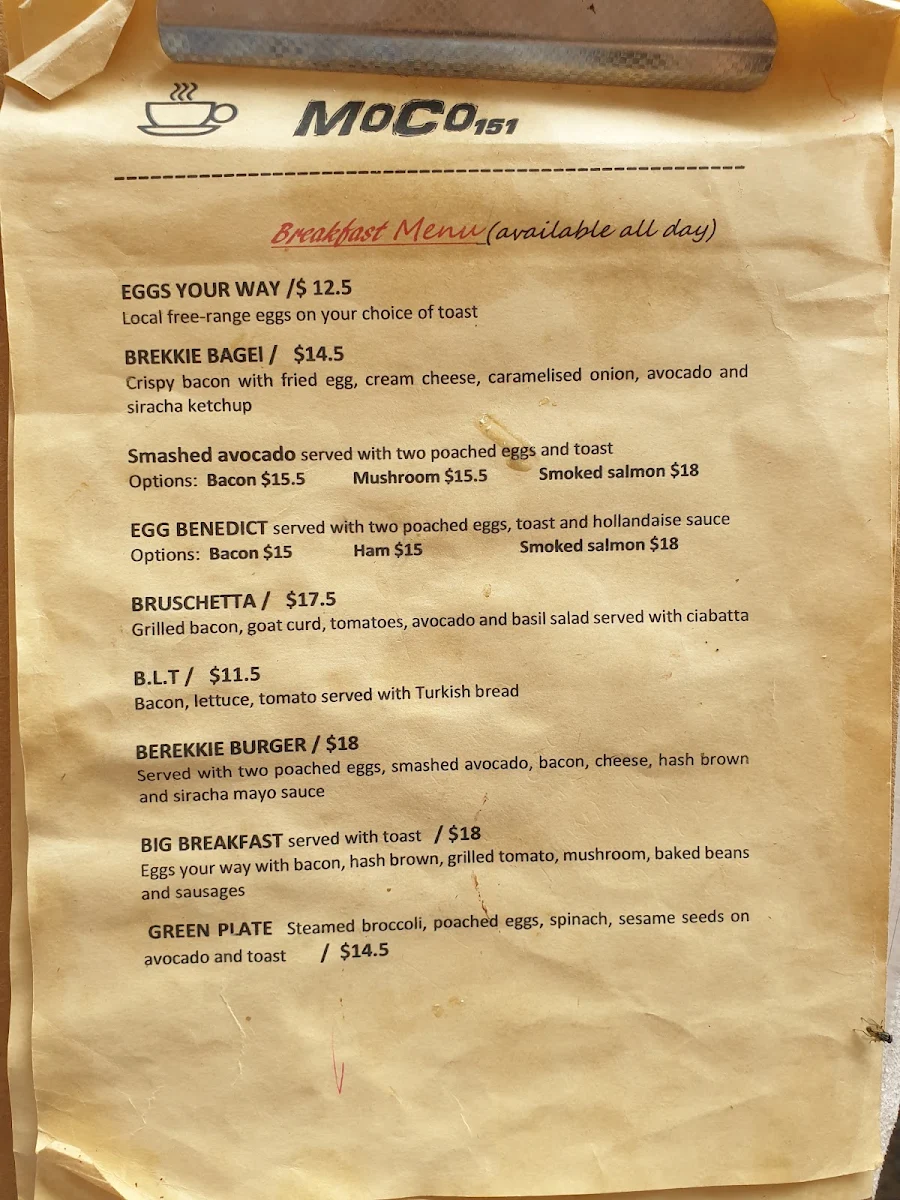 MoCo151
Breakfast Menu (available all day)
EGGS YOUR WAY /$ 12.5
Local free-range eggs on your choice of toast
BREKKIE BAGEl / $14.5
Crispy bacon with fried egg, cream cheese, caramelised onion, avocado and
siracha ketchup
Smashed avocado served with two poached eggs and toast
Options: Bacon $15.5 Mushroom $15.5 Smoked salmon $18
EGG BENEDICT served with two poached eggs, toast and hollandaise sauce
Options: Bacon $15 Ham $15 Smoked salmon $18
BRUSCHETTA / $17.5
Grilled bacon, goat curd, tomatoes, avocado and basil salad served with ciabatta
B.L.T / $11.5
Bacon, lettuce, tomato served with Turkish bread
BEREKKIE BURGER / $18
Served with two poached eggs, smashed avocado, bacon, cheese, hash brown
and siracha mayo sauce
BIG BREAKFAST served with toast / $18
Eggs your way with bacon, hash brown, grilled tomato, mushroom, baked beans
and sausages
GREEN PLATE Steamed broccoli, poached eggs, spinach, sesame seeds on
avocado and toast / $14.5